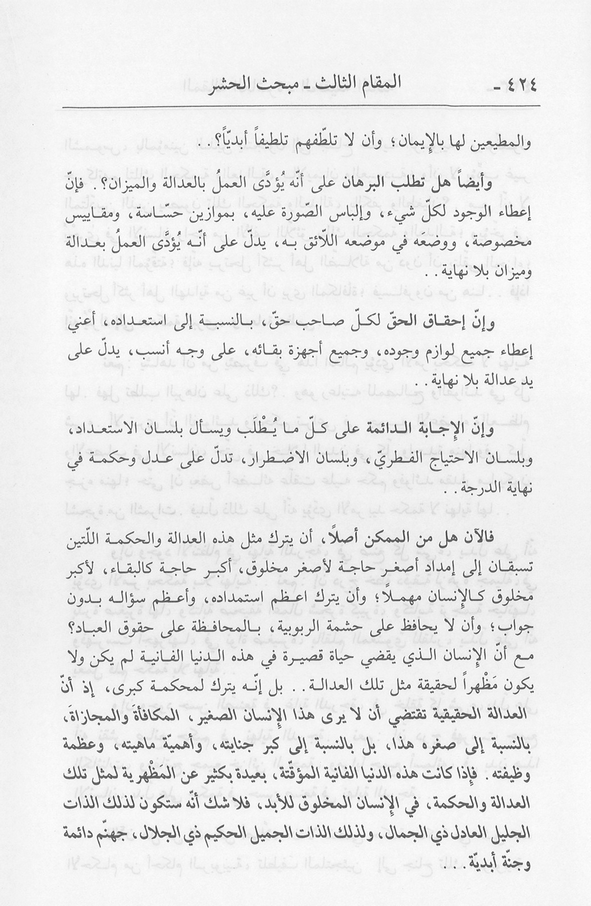 ٤٢٤ - المقام الثالث - مبحث الحشر
والمطيعين لها بالإيمان؛ وأن لا تلطّفهم تلطيفاً أبديّاً؟..
وأيضاً هل تطلب البرهان على أنّه يُؤدَّى العملُ بالعدالة والميزان؟. فإنّ
إعطاء الوجود لكلّ شيء، وإلباس الصّورة عليه، بموازين حسّاسة، ومقاييس
مخصوصة، ووضعه في موضعه اللائق به، يدلّ على أنّه يُؤدَّى العملُ بعدالة
وميزان بلا نهاية..
وإنّ إحقاق الحقّ لكلّ صاحب حقّ، بالنسبة إلى استعداده، أعني
إعطاء جميع لوازم وجوده، وجميع أجهزة بقائه، على وجه أنسب، يدلّ على
يد عدالة بلا نهاية..
وإنّ الإجابة الدائمة على كلّ ما يُطْلَب ويسأل بلسان الاستعداد،
وبلسان الاحتياج الفطريّ، وبلسان الاضطرار، تدلّ على عدل وحكمة في
نهاية الدرجة..
فالآن هل من الممكن أصلًا، أن يترك مثل هذه العدالة والحكمة اللّتين
تسبقان إلى إمداد أصغر حاجة لأصغر مخلوق، أكبر حاجة كالبقاء، لأكبر
مخلوق كالإنسان مهملًا؛ وأن يترك اعظم استمداده، وأعظم سؤاله بدون
جواب؛ وأن لا يحافظ على حشمة الربوبية، بالمحافظة على حقوق العباد؟
مع أنّ الإنسان الذي يقضي حياة قصيرة في هذه الدنيا الفانية لم يكن ولا
يكون مَظْهراً لحقيقة مثل تلك العدالة.. بل إنّه يترك لمحكمة كبرى، إذ أنّ
العدالة الحقيقية تقتضي أن لا يرى هذا الإنسان الصغير، المكافأةَ والمجازاةَ،
بالنسبة إلى صغره هذا، بل بالنسبة إلى كبر جنايته، وأهميّة ماهيته، وعظمة
وظيفته. فإذا كانت هذه الدنيا الفانية المؤقّتة، بعيدة بكثير عن المَظْهرية لمثل تلك
العدالة والحكمة، في الإنسان المخلوق للأبد، فلا شك أنّه ستكون لذلك الذات
الجليل العادل ذي الجمال، ولذلك الذات الجميل الحكيم ذي الجلال، جهنّم دائمة
وجنة أبديّة...